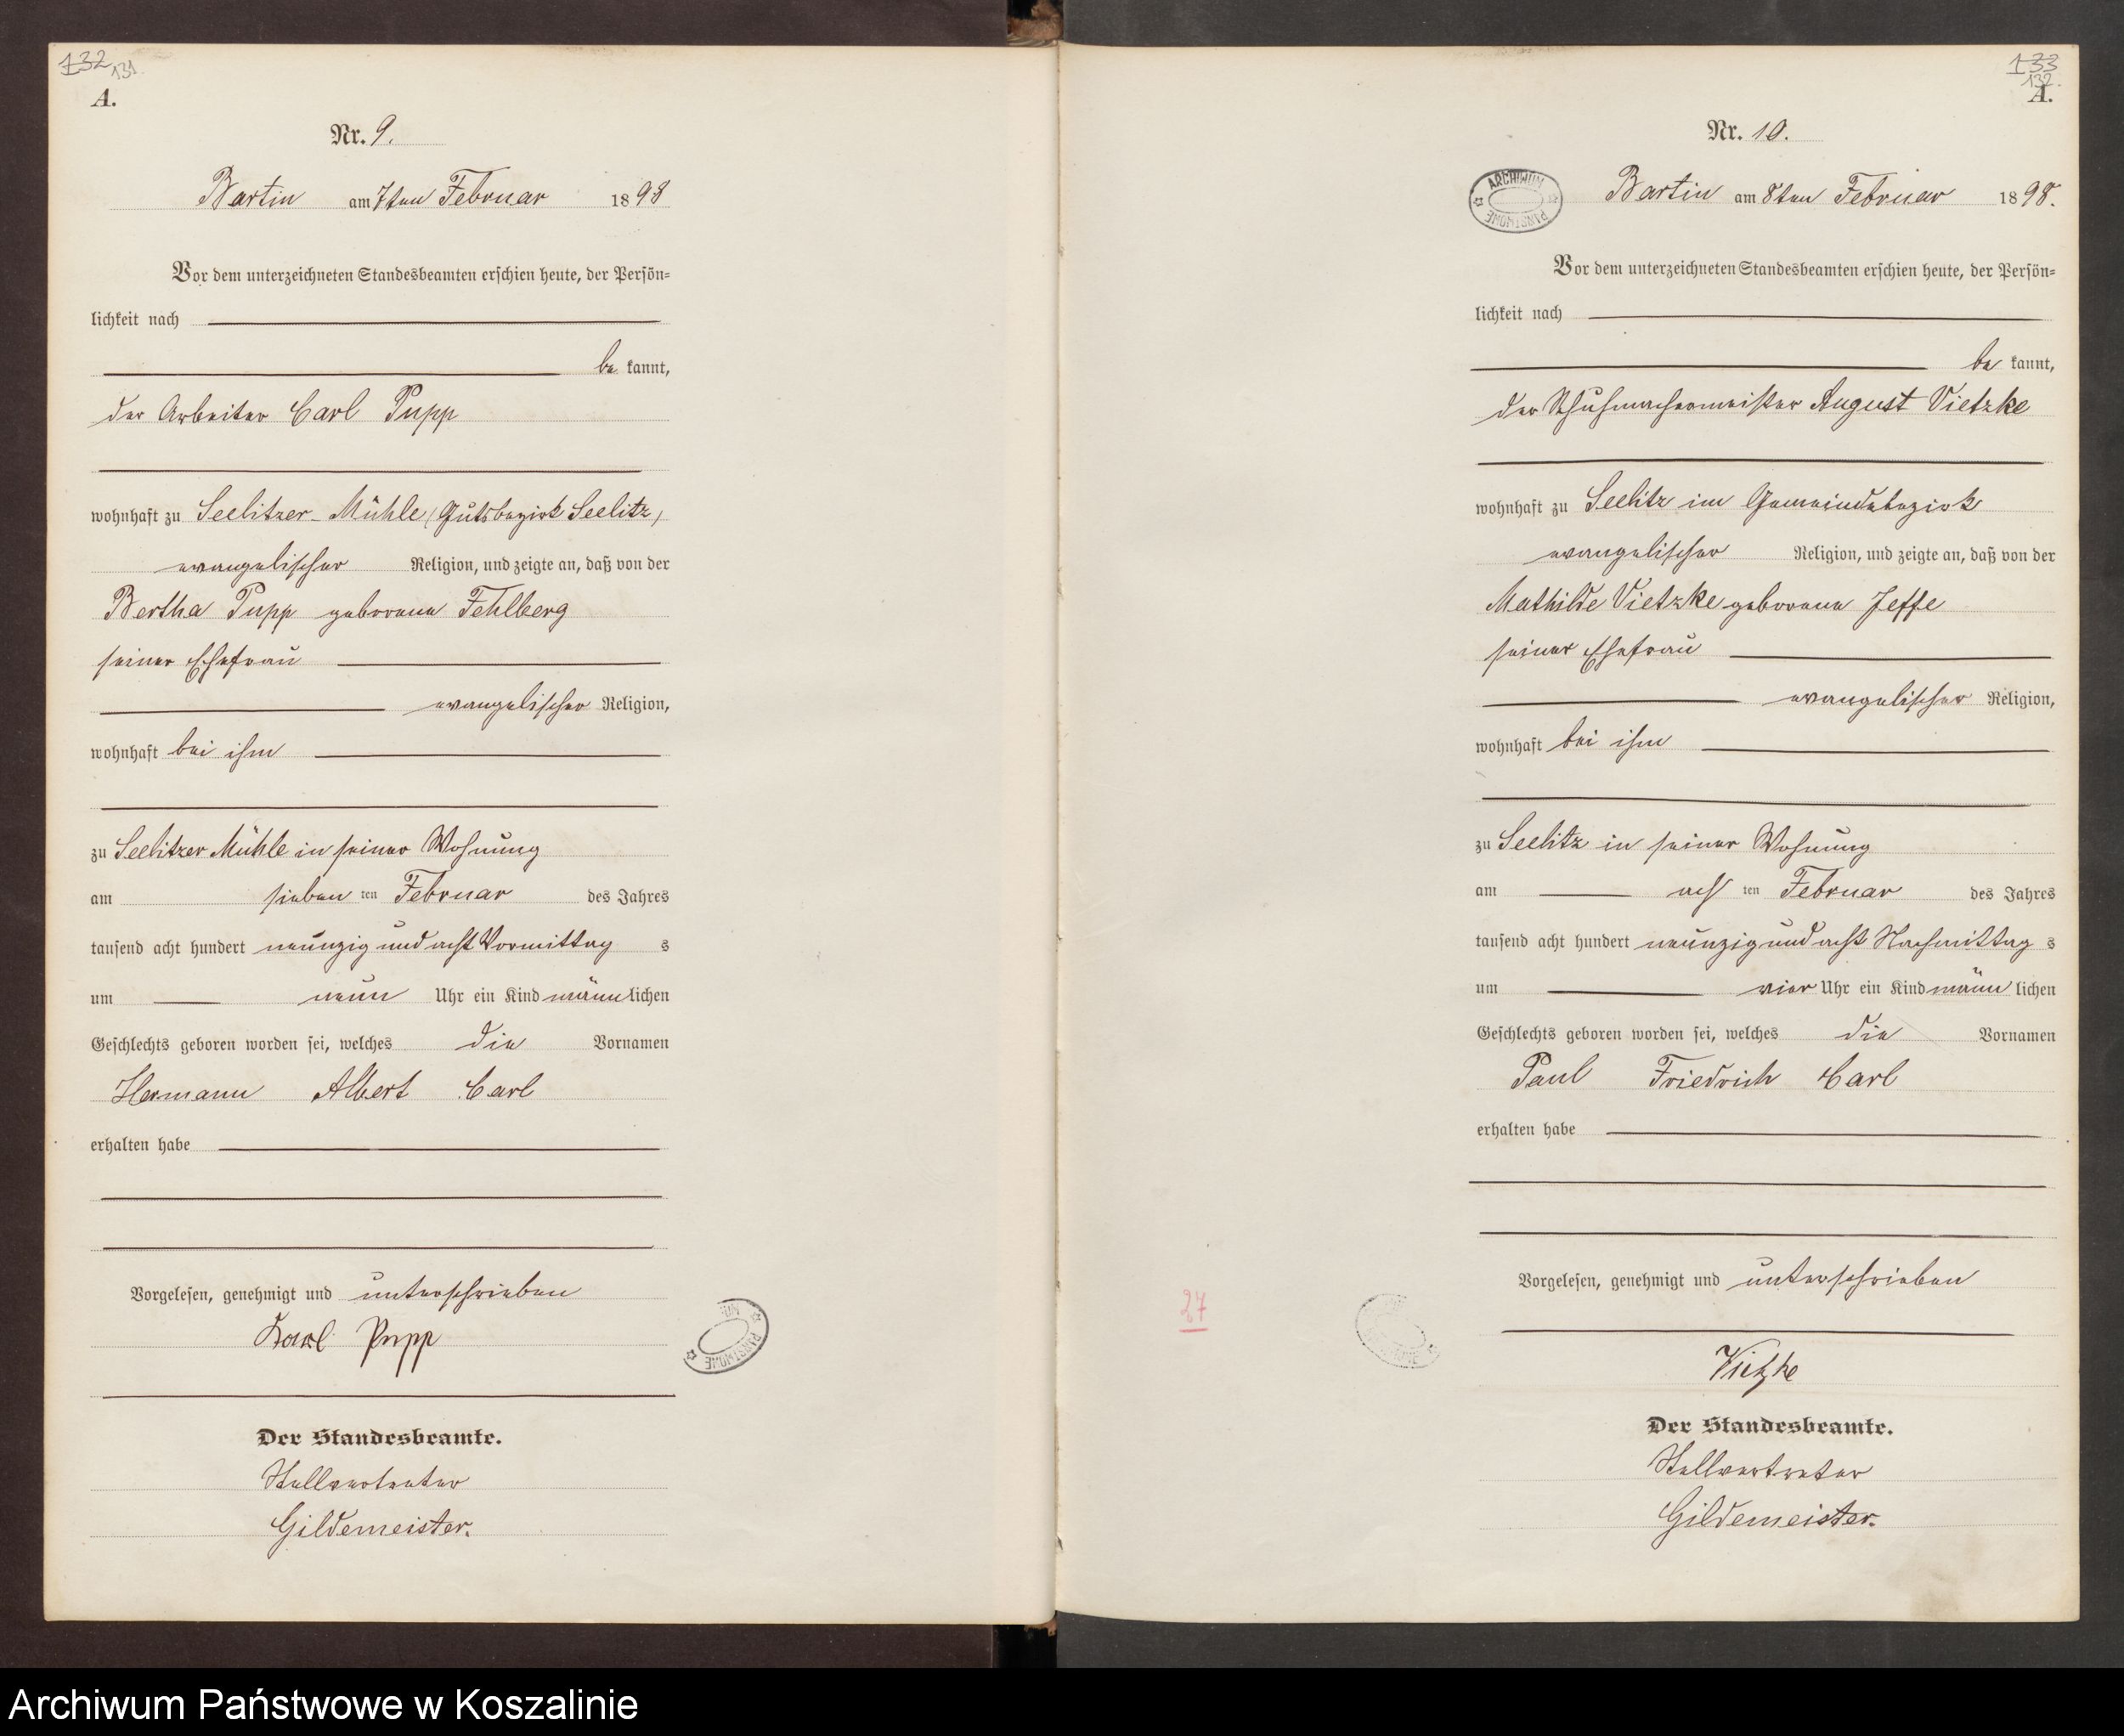 132
131
A.
Nr. 9.
Bartin am 7ten Februar 1898
Vor dem unterzeichneten Standesbeamten erschien heute, der Persön=
lichkeit nach
be kannt,
der Arbeiter Carl Pupp
wohnhaft zu Seelitzer-Mühle (Gutsbezirk Seelitz)
evangelischer Religion, und zeigte an, daß von der
Bertha Pupp geborene Fehlberg
seiner Ehefrau
evangelischer Religion,
wohnhaft bei ihm
zu Seelitzer Mühle in seiner Wohnung
am sieben ten Februar des Jahres
tausend acht hundert neunzig und acht Vormittag s
um neun Uhr ein Kind männlichen
Geschlechts geboren worden sei, welches die Vornamen
Hermann Albert Carl
erhalten habe
Vorgelesen, genehmigt und unterschrieben
Karl Pupp
Der Standesbeamte.
Stellvertreter
Gildemeister.
133
132
A.
Nr. 10.
ARCHIWUM PAŃSTWOWE
Bartin am 8ten Februar 1898.
Vor dem unterzeichneten Standesbeamten erschien heute, der Persön=
lichkeit nach
be kannt,
der Schuhmachermeister August Vietzke
wohnhaft zu Seelitz im Gemeindebezirk
evangelischer Religion, und zeigte an, daß von der
Mathilde Vietzke geborene Jeffe
seiner Ehefrau
evangelischer Religion,
wohnhaft bei ihm
zu Seelitz in seiner Wohnung
am ach ten Februar des Jahres
tausend acht hundert neunzig und acht Nachmittag s
um vier Uhr ein Kind männ lichen
Geschlechts geboren worden sei, welches die Vornamen
Paul Friedrich Carl
erhalten habe
Vorgelesen, genehmigt und unterschrieben
27
Vietzke
Der Standesbeamte.
Stellvertreter
Gildemeister.
Archiwum Państwowe w Koszalinie